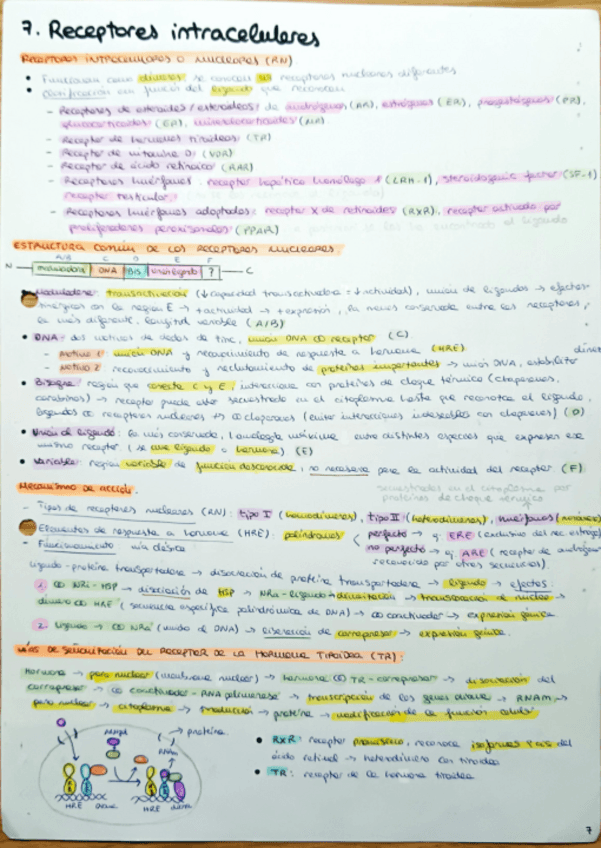 7. Receptores intracelulares
RECEPTORES INTRACELULARES O NUCLEARES (RN)
• Funcionan como dímeros, se conocen 48 receptores nucleares diferentes
• Clasificación en función del ligando que reconocen
- Receptores de esteroides/esteroideos: de andrógenos (AR), estrógenos (ER), progestágenos (PR),
glucocorticoides (ER), mineralocorticoides (MR)
- Receptor de hormonas tiroideas (TR)
- Receptor de vitamina D (VDR)
- Receptor de ácido retinoico (RAR)
- Receptores huérfanos: receptor hepático homólogo 1 (LRH-1), steroidogenic factor (SF-1)
receptor testicular
- Receptores huérfanos adoptados: receptor X de retinoides (RXR), receptor activado por
proliferadores peroxisomales (PPAR)
ESTRUCTURA COMÚN DE LOS RECEPTORES NUCLEARES
A/B C D E F
N moduladora DNA Bis unión ligando ? C
• Moduladora: transactivación (↓capacidad transactivadora = ↓actividad), unión de ligandos → efectos
sinérgicos en la región E → +actividad → +expresión, la menos conservada entre los receptores,
la más diferente, longitud variable (A/B)
• DNA: dos motivos de dedos de zinc, unión DNA receptor (C)
- Motivo 1: unión DNA y reconocimiento de respuesta a hormona (HRE)
- Motivo 2: reconocimiento y reclutamiento de proteínas importantes → unión DNA, estabilizar
• Bisagra: región que conecta C y E, interacciona con proteínas de choque térmico (chaperonas,
) → receptor puede estar secuestrado en el citoplasma hasta que reconozca el ligando,
ligandos receptores nucleares → chaperonas (evitar interacciones indeseables con chaperonas) (D)
• Unión de ligando: la más conservada, homología máxima entre distintas especies que expresen ese
mismo receptor, (se une ligando o hormona) (E)
• Variable: región variable de función desconocida, no necesaria para la actividad del receptor (F)
MECANISMO DE ACCIÓN.
secuestrados en el citoplasma por
proteínas de choque térmico
- Tipos de receptores nucleares (RN): tipo I (homodímeros), tipo II (heterodímeros), huérfanos
• Elementos de respuesta a hormona (HRE): palíndromos ( perfecto → ej. ERE (exclusivo del rec estrógeno)
no perfecto → ej. ARE (receptor de andrógenos
reconocido por otros secuencias).
- Funcionamiento vía clásica
Ligando-proteína transportadora → disociación de proteína transportadora → ligando → efectos:
1. NRi-HSP → disociación de HSP → NRa-ligando → dimerización → translocación de núcleo →
dímero HRE (secuencia específica palindrómica de DNA) → coactivador → expresión génica
2. Ligando → NRi (unido a DNA) → liberación de correpresor → expresión génica.
VÍAS DE SEÑALIZACIÓN DEL RECEPTOR DE LA HORMONA TIROIDEA (TR):
Hormona → poro nuclear (membrana nuclear) → hormona TR-correpresor → disociación del
correpresor → coactivador-RNA polimerasa → transcripción de los genes diana → RNAm →
poro nuclear → citoplasma → traducción → proteína → modificación de la función celular
→ proteína
RNAm
HRE diana HRE diana
• RXR: receptor promiscuo, reconoce isoformas 9 cis del
ácido retinal → heterodímero con tiroidea
• TR: receptor de la hormona tiroidea
7